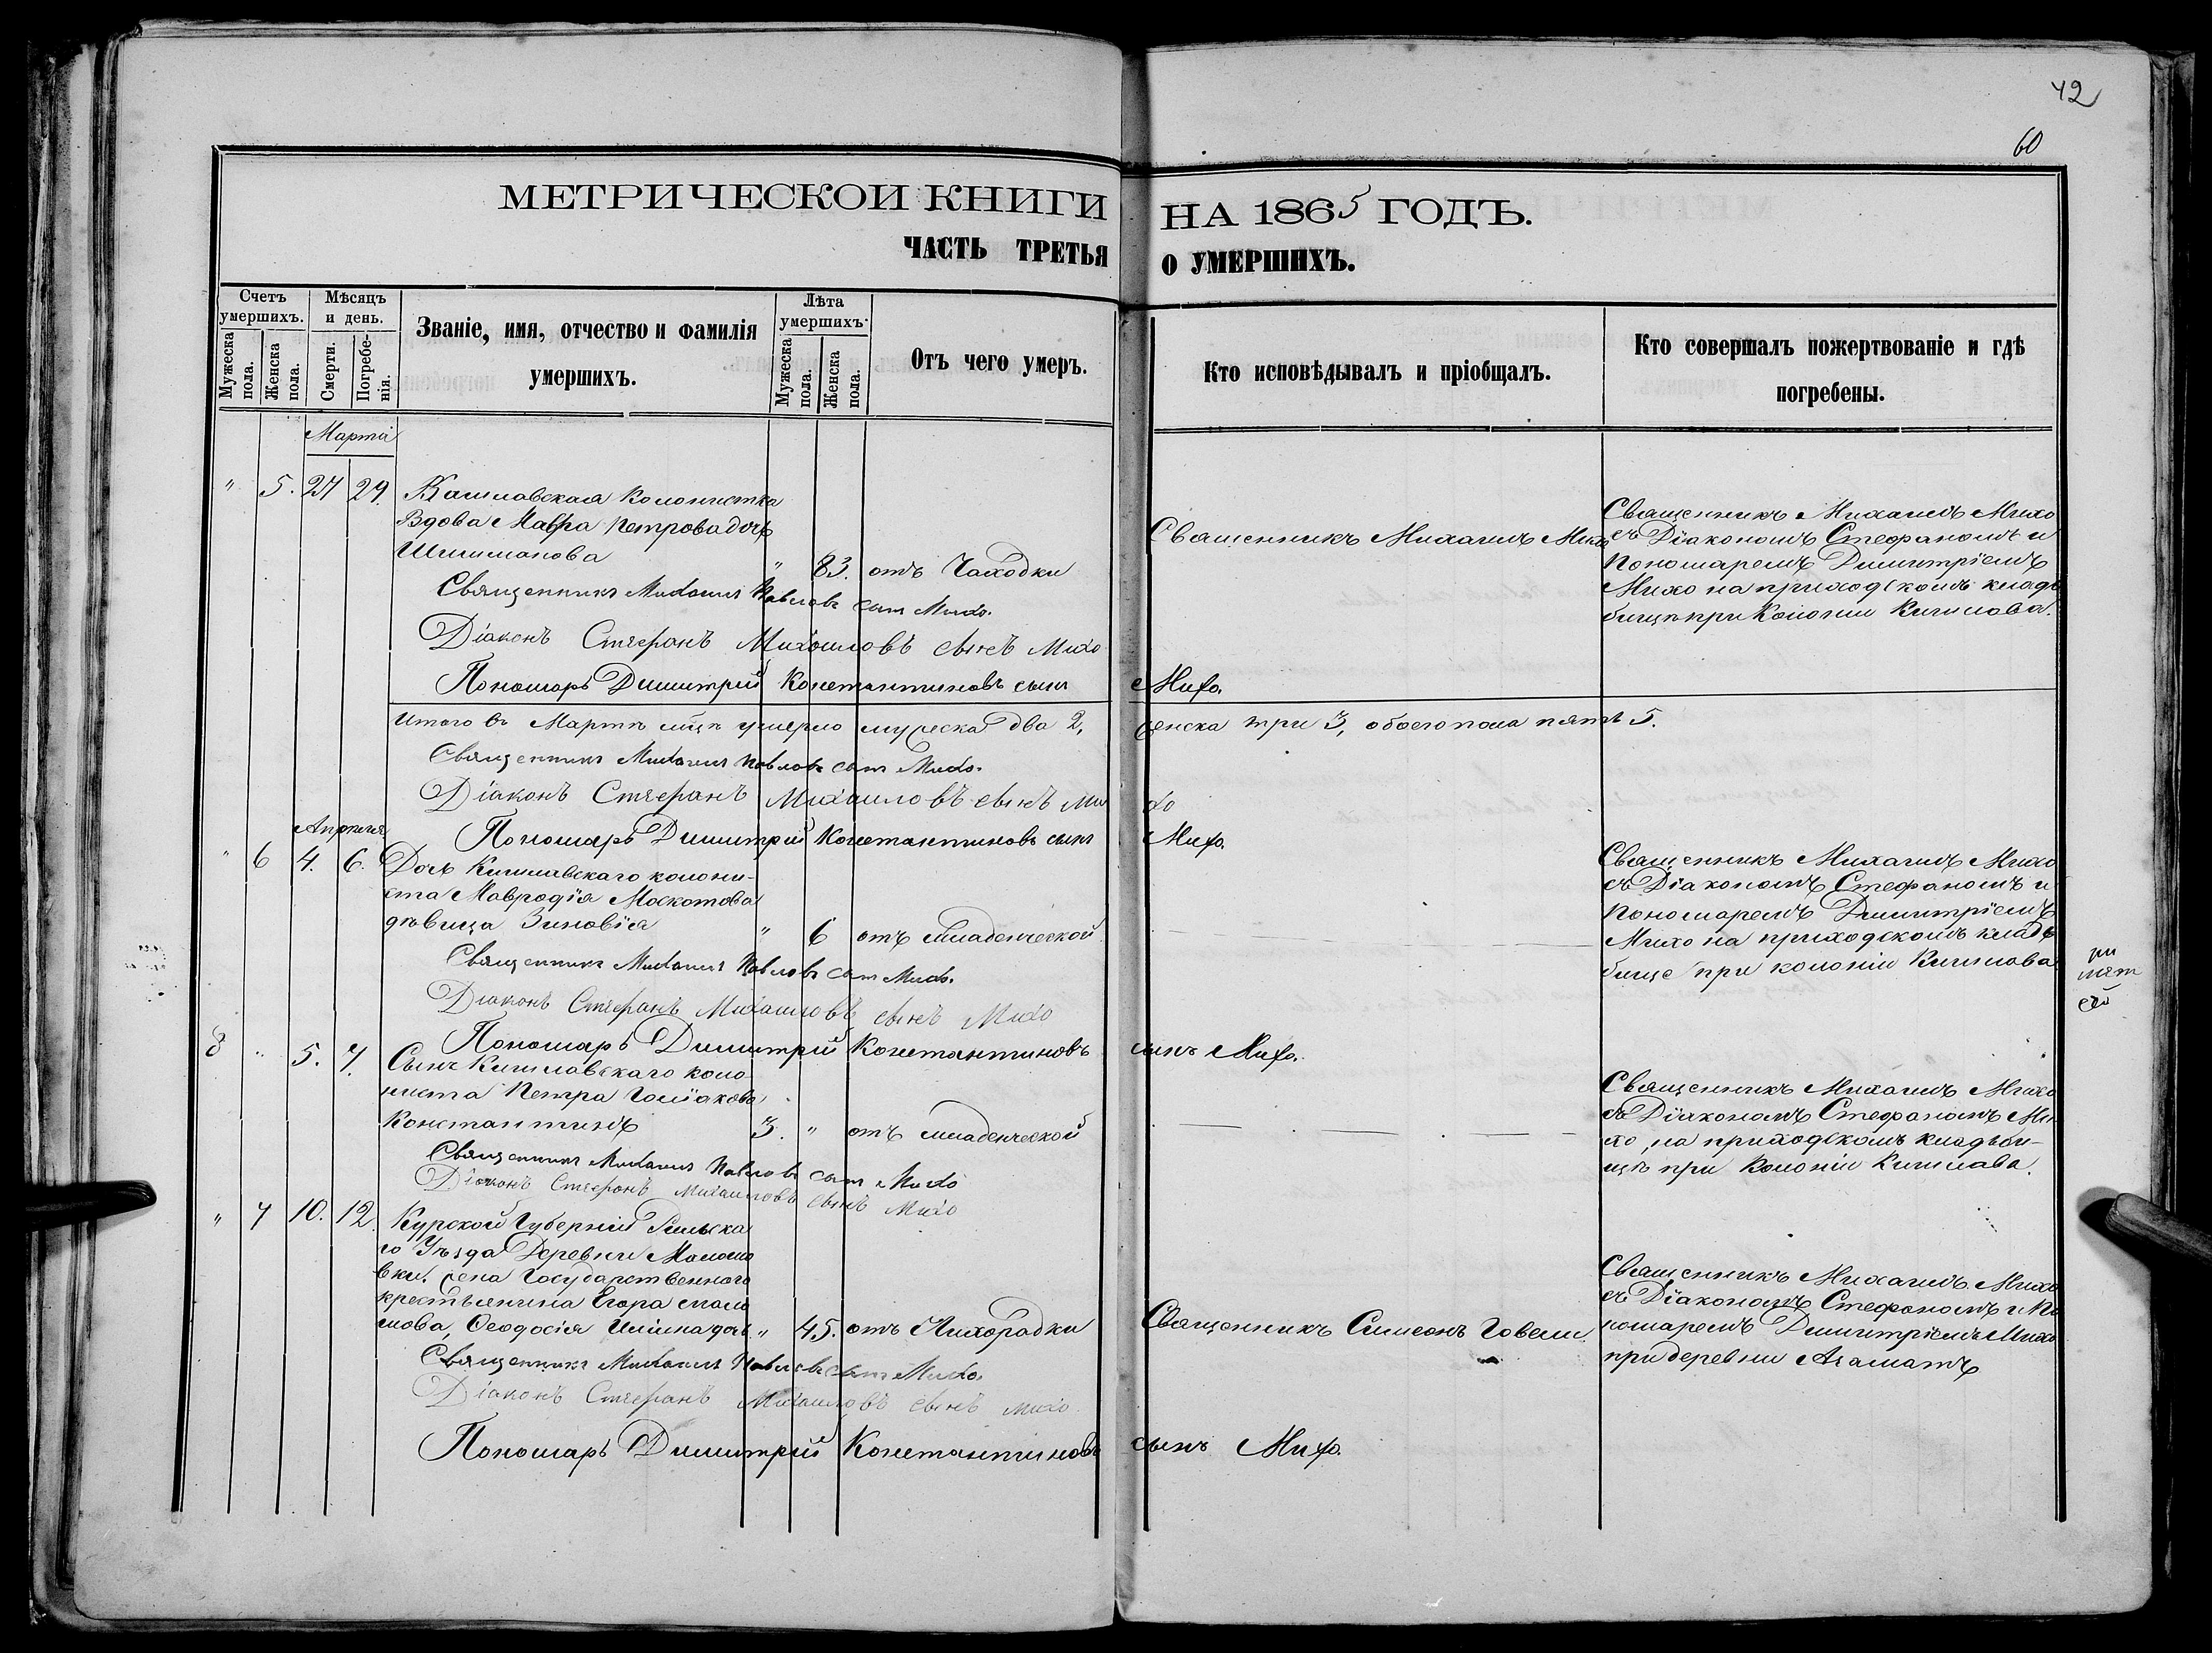 42
60
МЕТРИЧЕСКОЙ КНИГИ НА 1865 ГОДЪ.
ЧАСТЬ ТРЕТЬЯ О УМЕРШИХЪ.
Счетъ умершихъ.
Мужеска пола.
Женска пола.
Мѣсяцъ и день.
Смерти.
Погребенія.
Званіе, имя, отчество и фамилія
умершихъ.
Лѣта умершихъ.
Мужеска пола.
Женска пола.
Отъ чего умеръ.
Кто исповѣдывалъ и пріобщалъ.
Кто совершалъ пожертвованіе и гдѣ
погребены.
Марта
" 5. 27 29. Кишлавская колонистка
Вдова Мавра Петрова дочь
Шишманова " 83. отъ Чаходки
Священникъ Михаилъ Михо
Священникъ Михаилъ Михо
съ Діакономъ Стефаномъ и
Пономаремъ Димитріемъ
Михо на приходскомъ кладъ
бищѣ при Колоніи Кишлава.
Священникъ Михаилъ Павловъ сынъ Михо.
Діаконъ Стефанъ Михаиловъ сынъ Михо
Пономарь Димитрій Константиновъ сынъ Михо.
Итого въ Мартѣ мцѣ умерло мужеска два 2, женска три 3, обоего пола пять 5.
Священникъ Михаилъ Павловъ сынъ Михо.
Діаконъ Стефанъ Михаиловъ сынъ Михо
Апрѣля
Пономарь Димитрій Константиновъ сынъ Михо.
" 6 4. 6. Дочь Кишлавскаго колони-
ста Мавродія Москотова
дѣвица Зиновія " 6 отъ младенческой
Священникъ Михаилъ Михо
съ Діакономъ Стефаномъ и
Пономаремъ Димитріемъ
Михо на приходскомъ кладъ
бище при колоніи Кишлава
Священникъ Михаилъ Павловъ сынъ Михо.
Діаконъ Стефанъ Михаиловъ сынъ Михо
Пономарь Димитрій Константиновъ сынъ Михо.
8 " 5. 7. Сынъ Кишлавскаго коло
ниста Петра
Константинъ 3. " отъ младенческой
Священникъ Михаилъ Михо
съ Діакономъ Стефаномъ Ми
хо, на приходскомъ кладъби-
щѣ при Колоніи Кишлава.
Священникъ Михаилъ Павловъ сынъ Михо
Діаконъ Стефанъ Михаиловъ сынъ Михо
" 7 10. 12. Курской Губерніи Рильска
го Уѣзда Деревни
вки. жена Государственнаго
крестьянина Егора
Ѳеодосія Ильина дочь " 45. отъ Лихорадки
Священникъ Симеонъ
Священникъ Михаилъ Михо
съ Діакономъ Стефаномъ и По
номаремъ Димитріемъ Михо
при деревни Агаматъ
Священникъ Михаилъ Павловъ сынъ Михо.
Діаконъ Стефанъ Михаиловъ сынъ Михо.
Пономарь Димитрій Константиновъ сынъ Михо.